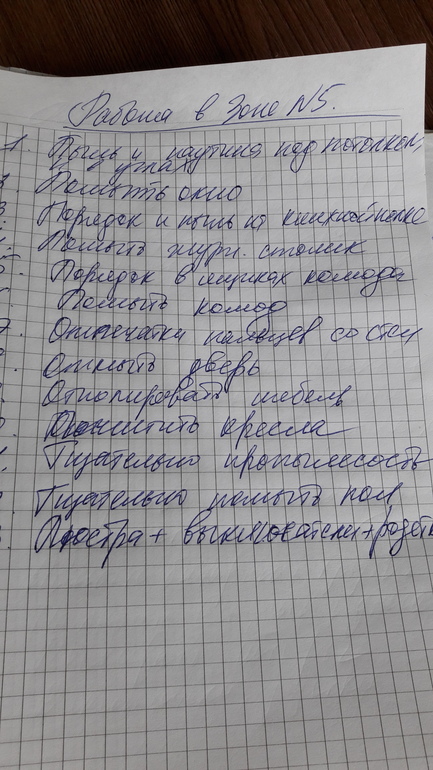 Работа в Зоне N5.
1. Пыль и паутина под потолком,
углах
Помыть окно
Порядок и пыль на книжной полке
Помыть журн. столик
Порядок в ящиках комода
Помыть комод
Отпечатки пальцев со стен
Отмыть дверь
Отполировать мебель
Почистить кресла
Тщательно пропылесосить
Тщательно помыть пол
Люстра + выключатели + розетк